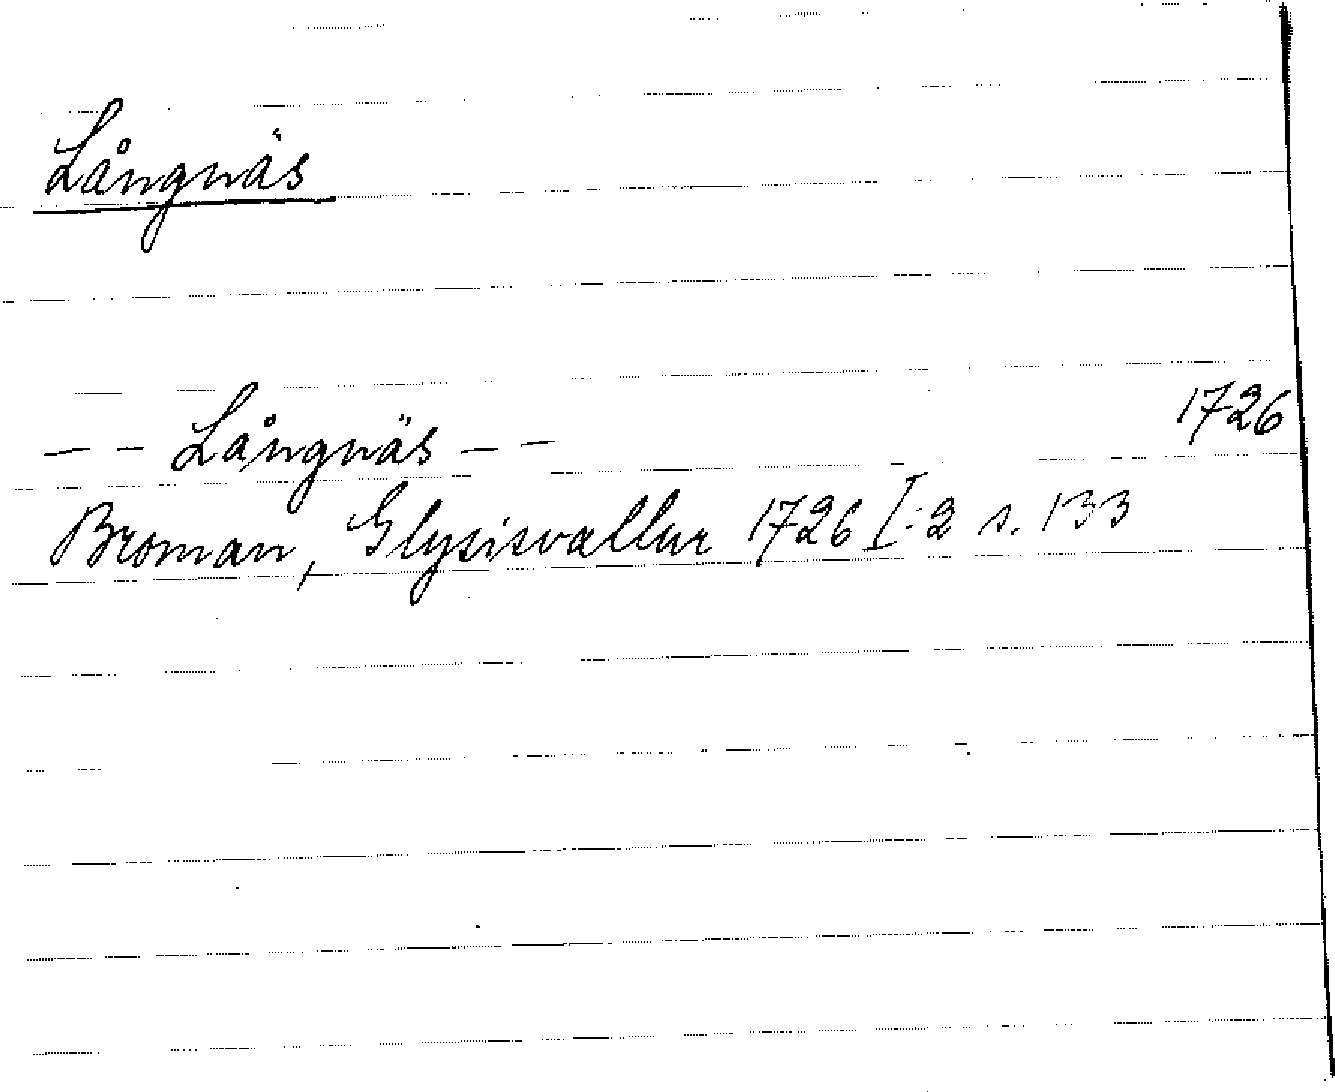 Långnäs
— — Långnäs — — 1726
Broman, Glysisvallur 1726 I:2 s. 133